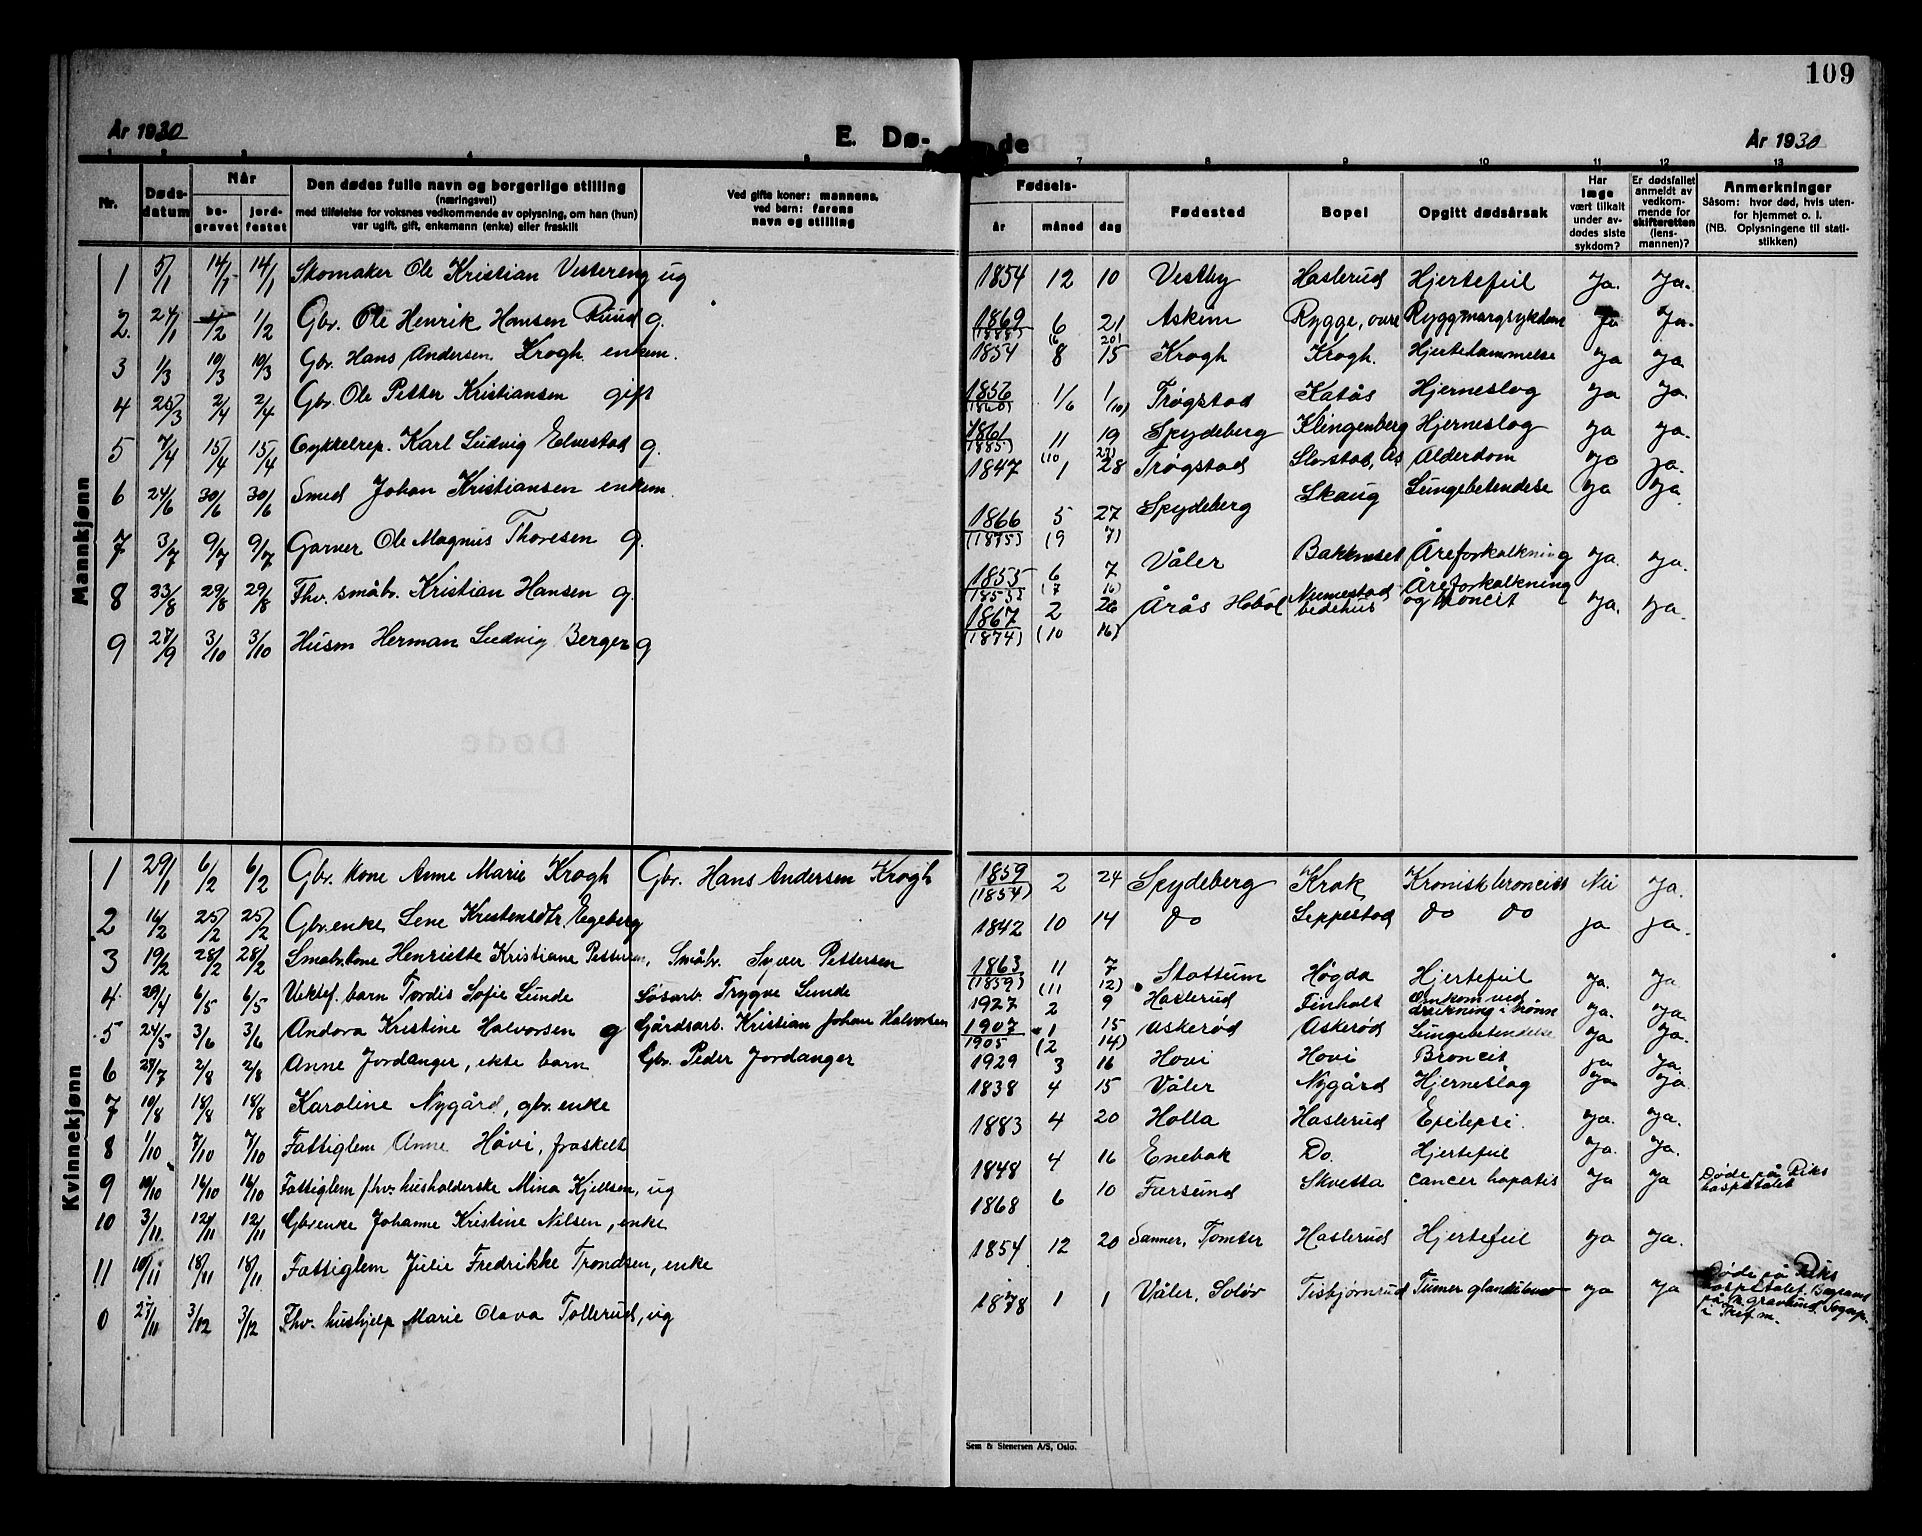 109
År 1930
E. Dø-
de
År 1930
1 2 3 4 5
7 8 9 10 11 12 13
Nr.
Døds-
datum
Når
be-
gravet
jord-
festet
Den dødes fulle navn og borgerlige stilling
(næringsvei)
med tilføielse for voksnes vedkommende av oplysning, om han (hun)
var ugift, gift, enkemann (enke) eller fraskilt
Ved gifte koner: mannens,
ved barn: farens
navn og stilling
Fødsels-
år måned dag
Fødested
Bopel
Opgitt dødsårsak
Har
læge
vært tilkalt
under av-
dødes siste
sykdom?
Er dødsfallet
anmeldt av
vedkom-
mende for
skifteretten
(lens-
mannen)?
Anmerkninger
Såsom: hvor død, hvis uten-
for hjemmet o. l.
(NB. Oplysningene til stati-
stikken)
Mannkjønn
1 5/1 14/1 14/1 Skomaker Ole Kristian Vestereng ug 1854 12 10 Vestby Haslerud Hjertefeil Ja. Ja.
2. 24/1 1/2 1/2 Gbr. Ole Henrik Hansen Ruud g. 1869 6 21 Askim Rygge, øvre Ryggmargsykdom Ja Ja.
(1888) (6 20)
3 1/3 10/3 10/3 Gbr. Hans Andersen Krogh enkem. 1854 8 15 Krogh Krogh. Hjertelammelse Ja Ja.
4 25/3 2/4 2/4 Gbr. Ole Petter Kristiansen gift 1856 1/6 1/(10) Trøgstad Katås Hjerneslag Ja Ja.
(1860)
5 7/4 15/4 15/4 Cykkelrep. Karl Ludvig Elvestad g. 1861 11 19 Spydeberg Klingenberg Hjerneslag Ja Ja.
(1885) (10 27)
6 24/6 30/6 30/6 Smed Johan Kristiansen enkem. 1847 1 28 Trøgstad Slorstad, Ås Alderdom Ja Ja.
Spydeberg Skaug Lungebetendelse Ja Ja.
7 3/7 9/7 9/7 Garver Ole Magnus Thoresen g. 1866 5 27
(1895) (9 7)
Våler Bakkuset Åreforkalkning Ja. Ja.
8 23/8 29/8 29/8 Fhv. småbr. Kristian Hansen g. 1855 6 7
(1853) (7 16)
Årås Hobøl bedehus Åreforkalkning og broncit Ja. Ja.
9 27/9 3/10 3/10 Husm Herman Ludvig Berger g 1867 2 26
(1874) (10 16)
Kvinnekjønn
1 29/1 6/2 6/2 Gbr. kone Anne Marie Krogh Gbr. Hans Andersen Krogh 1859 2 24 Spydeberg Krok Kronisk broncitt Nei Ja.
(1854)
2 16/2 25/2 25/2 Gbr.enke Lene Kristensdtr. Egeberg 1842 10 14 Do Leppestad Do Do Ja Ja.
3 19/2 28/2 28/2 Småbr.kone Henriette Kristiane Pettersen, Småbr. Syver Pettersen 1863 11 7 Stattum Høgda Hjertefeil Ja. Ja
(1859) (11 12)
4 29/4 6/5 6/5 Uektef. barn Tordis Sofie Lunde Løsarb. Trygve Lunde 1927 2 9 Haslerud Finholt Omkom ved drukning i brønn Ja. Ja.
5 24/5 3/6 3/6 Andora Kristine Halvorsen g Gårdsarb. Kristian Johan Halvorsen 1907 1 15 Askerød Askerød Lungebetendelse Ja Ja.
1905 (2 14)
6 28/7 2/8 2/8 Anne Jordanger, ekte barn Gbr. Peder Jordanger 1929 3 16 Hovi Hovi Broncit Ja Ja.
7 10/8 18/8 18/8 Karoline Nygård, gbr. enke 1838 4 15 Våler Nygård Hjerneslag Ja Ja.
8 1/10 7/10 7/10 Fattiglem Anne Håvi, fraskelt 1883 4 20 Holla Haslerud Epilepsi. Ja. Ja.
9 10/10 16/10 16/10 Fattiglem fhv. husholderske Mina Kjellsen, ug 1848 4 16 Enebak Do. Hjertefeil Ja. Ja.
10 3/11 12/11 12/11 Gbr.enke Johanne Kristine Nilsen, enke 1868 6 10 Fursund Skvetta cancer hepatis Ja Ja Døde på Riks
hospitalet
11 10/11 18/11 18/11 Fattiglem Julie Fredrikke Trondsen, enke 1854 12 20 Sanner, Tomter Haslerud Hjertefeil Ja Ja.
0 27/11 3/12 3/12 Fhv. hushjelp Marie Olava Tollerud, ug 1878 1 1 Våler, Solør Tisbjørnrud Tumor Ja Ja Døde på Riks
hospitalet. Begravet
på gravlund
i
Sem & Stenersen A/S, Oslo.